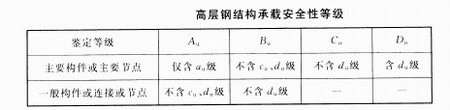 高层钢结构承载安全性等级
鉴定等级 Au Bu Cu Du
主要构件或主要节点 仅含 au级 不含 cu、du级 不含 du级 含 du级
一般构件或连接或节点 不含 cu、du级 不含 du级 — —